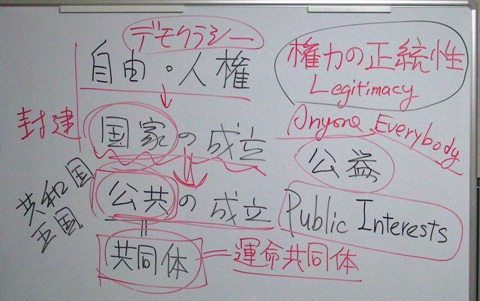 デモクラシー
自由・人権
封建
国家の成立
共和国
王国
公共の成立
共同体=運命共同体
権力の正統性
Legitimacy
Anyone Everybody
公益
Public Interests